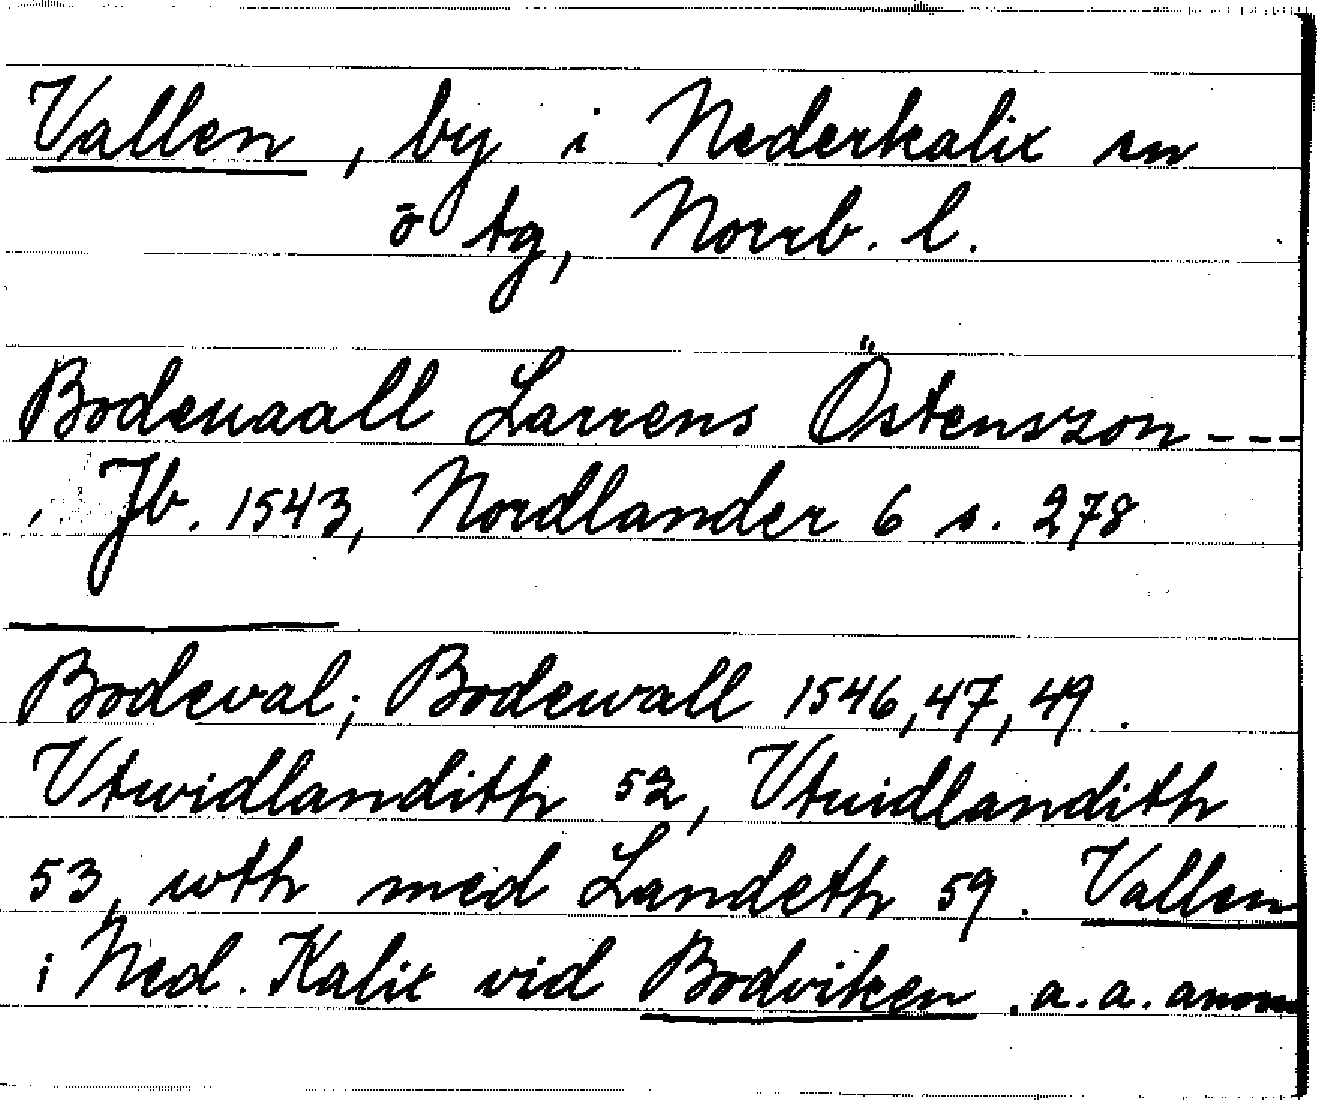 Vallen, by i Nederkalix sn
ö tg, Norrb. l.
Bodeuaall Larrens Östensszon ---
Jb. 1543, Nordlander 6 s. 278
Bodeval; Bodewall 1546, 47, 49.
Vtwidlandith 52, Vtuidlandith
53, wth med Landeth 59. Vallen
i Ned. Kalix vid Bodviken. a.a. anm